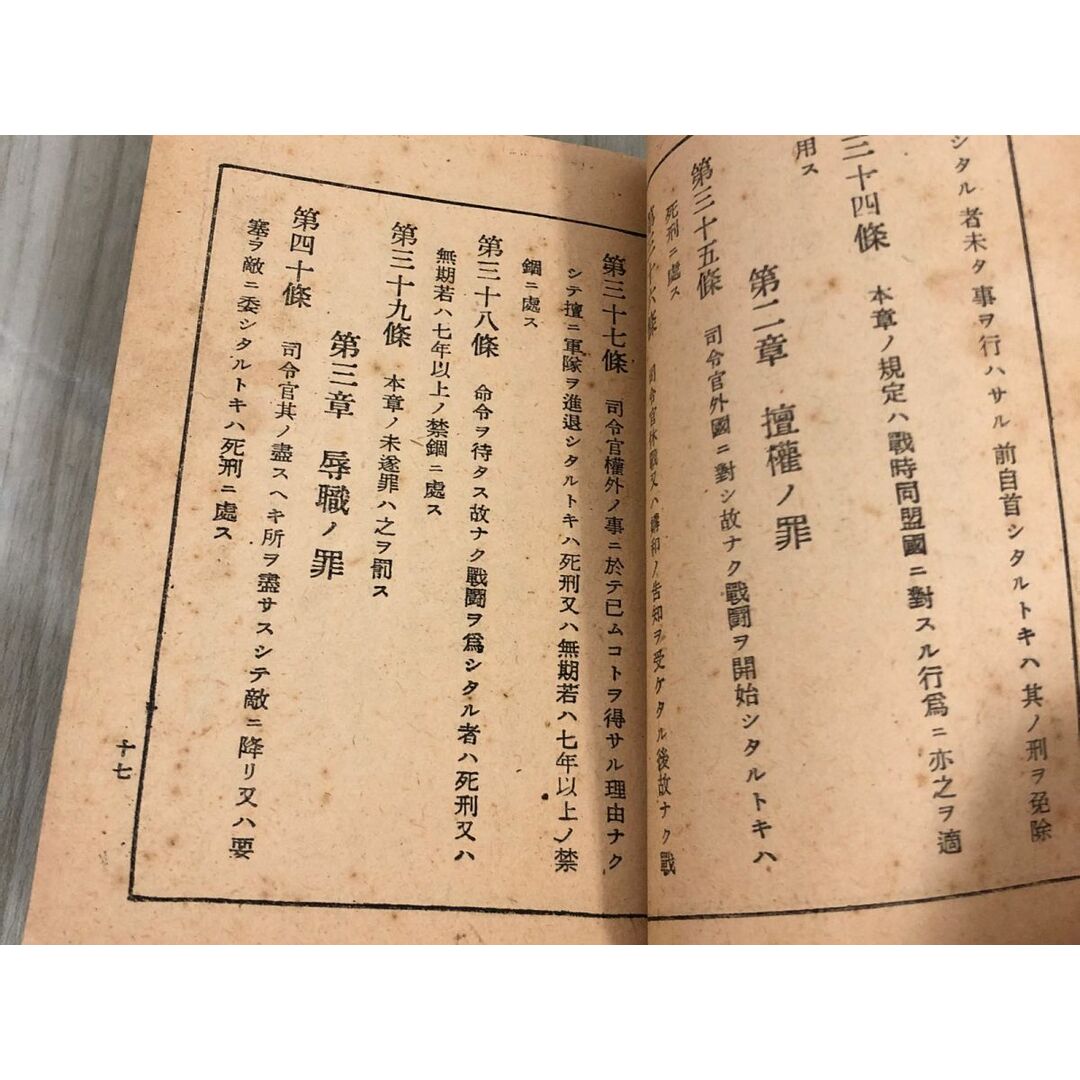 シタル者未タ事ヲ行ハサル前自首シタルトキハ其ノ刑ヲ免除
三十四條 本章ノ規定ハ戰時同盟國ニ對スル行爲ニ亦之ヲ適
用ス
第二章 擅權ノ罪
第三十五條 司令官外國ニ對シ故ナク戰鬪ヲ開始シタルトキハ
死刑ニ處ス
第三十六條 司令官休戰又ハ講和ノ告知ヲ受ケタル後故ナク戰
第三十七條 司令官權外ノ事ニ於テ已ムコトヲ得サル理由ナク
シテ擅ニ軍隊ヲ進退シタルトキハ死刑又ハ無期若ハ七年以上ノ禁
錮ニ處ス
第三十八條 命令ヲ待タス故ナク戰鬪ヲ爲シタル者ハ死刑又ハ
無期若ハ七年以上ノ禁錮ニ處ス
第三十九條 本章ノ未遂罪ハ之ヲ罰ス
第三章 辱職ノ罪
第四十條 司令官其ノ盡スヘキ所ヲ盡サスシテ敵ニ降リ又ハ要
塞ヲ敵ニ委シタルトキハ死刑ニ處ス
十七